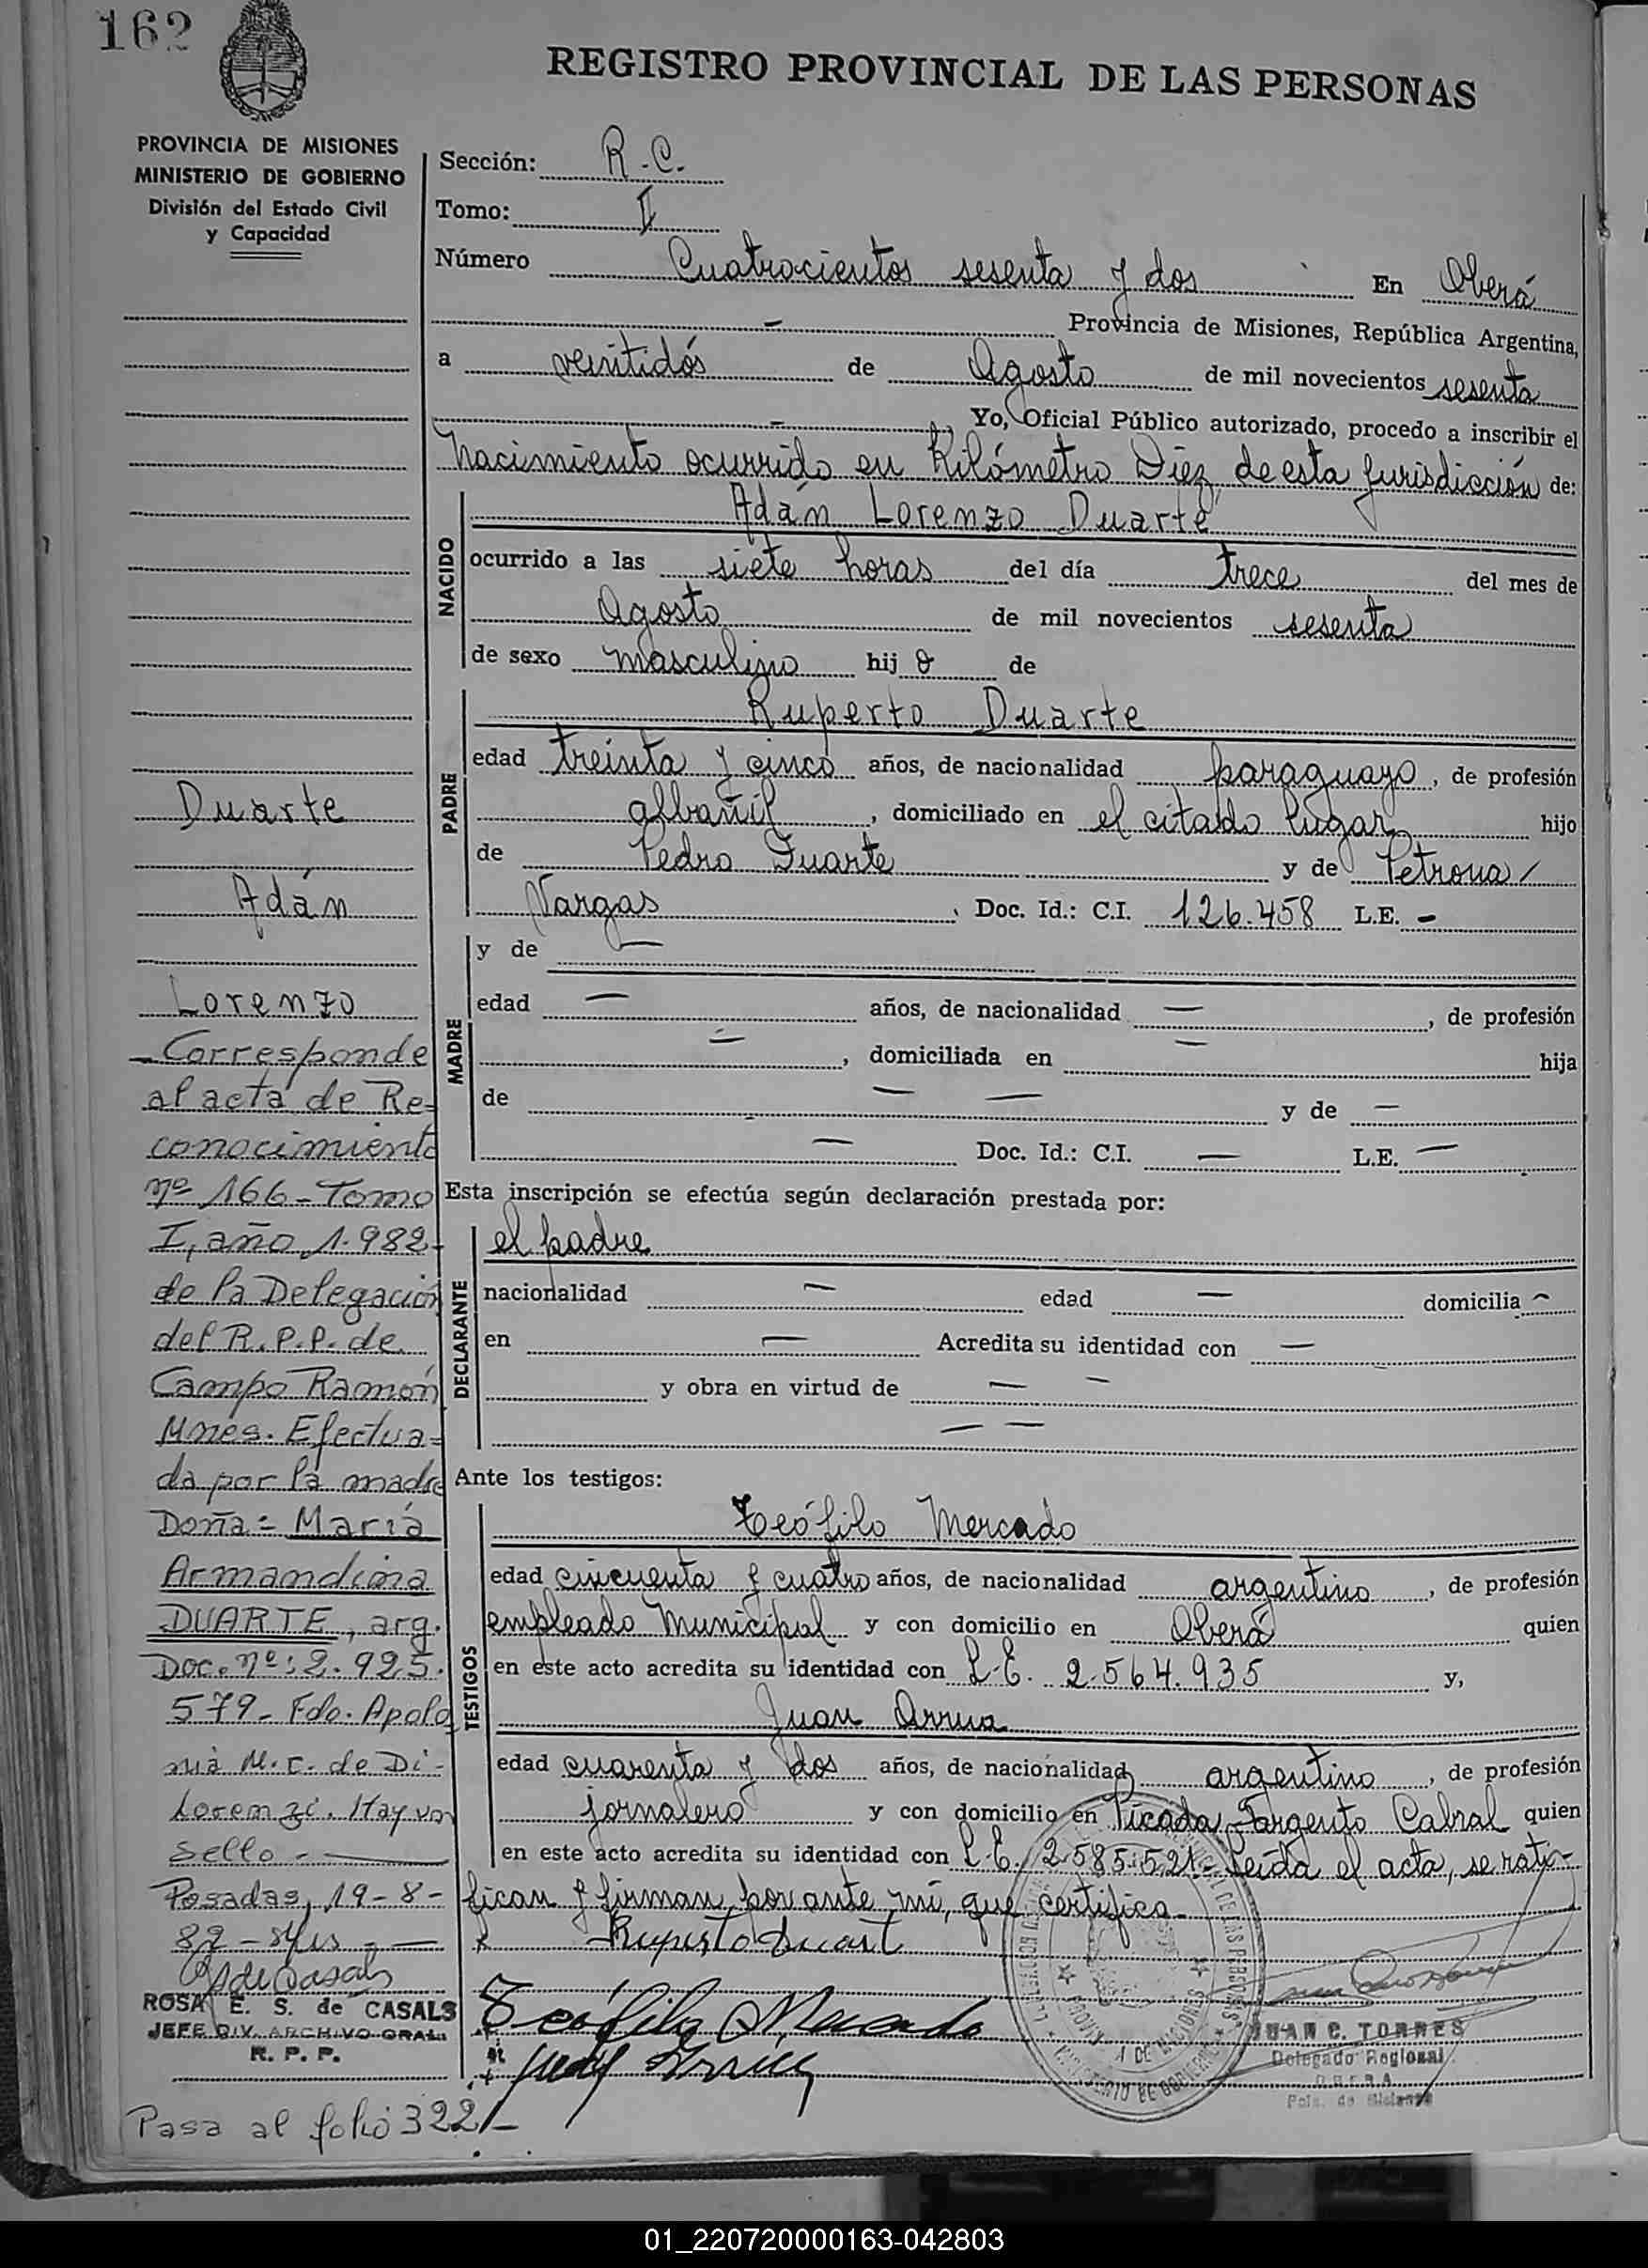 162
REGISTRO PROVINCIAL DE LAS PERSONAS
PROVINCIA DE MISIONES
MINISTERIO DE GOBIERNO
División del Estado Civil
y Capacidad
Sección: R.C.
Tomo: II
Número Cuatrocientos sesenta y dos En Oberá
Provincia de Misiones, República Argentina,
a veintidós de Agosto de mil novecientos sesenta
Yo, Oficial Público autorizado, procedo a inscribir el
nacimiento ocurrido en Kilómetro Diez de esta jurisdicción de:
NACIDO
Adán Lorenzo Duarte
ocurrido a las siete horas del día trece del mes de
Agosto de mil novecientos sesenta
de sexo masculino hijo de
PADRE
Ruperto Duarte
edad treinta y cinco años, de nacionalidad paraguayo, de profesión
albañil, domiciliado en el citado lugar hijo
de Pedro Duarte y de Petrona
Vargas, Doc. Id.: C.I. 126.458 L.E. -
MADRE
y de —
edad — años, de nacionalidad —, de profesión
—, domiciliada en — hija
de — — y de —
— Doc. Id.: C.I. — L.E. —
Esta inscripción se efectúa según declaración prestada por:
DECLARANTE
el padre
nacionalidad — edad — domicilia -
en — Acredita su identidad con —
y obra en virtud de — -
— —
Ante los testigos:
TESTIGOS
Teófilo Mercado
edad cincuenta y cuatro años, de nacionalidad argentino, de profesión
empleado Municipal y con domicilio en Oberá quien
en este acto acredita su identidad con L.E. 2.564.935 y,
Juan Arrua
edad cuarenta y dos años, de nacionalidad argentino, de profesión
jornalero y con domicilio en Picada Sargento Cabral quien
en este acto acredita su identidad con L.E. 2.585.521.- Leída el acta, se rati-
fican y firman por ante mí, que certifico.
Ruperto Duart
Teófilo Mercado
JUAN C. TORRES
Delegado Regional
OBERA
Pcia. de Misiones
Duarte
Adán
Lorenzo
-Corresponde
al acta de Re-
conocimiento
nº 166-Tomo
I, año 1.982-
de la Delegación
del R.P.P. de
Campo Ramón
Mnes. Efectua-
da por la madre
Doña= María
Armandina
DUARTE, arg.
Doc. nº: 2.925.
579- Fdo. Apolo
nia M.C. de Di-
Lorenzi. Hay un
sello.-
Posadas, 19-8-
82-
ROSA E. S. de CASALS
JEFE DIV. ARCHIVO GRAL.
R. P. P.
Pasa al folio 322/-
01_220720000163-042803